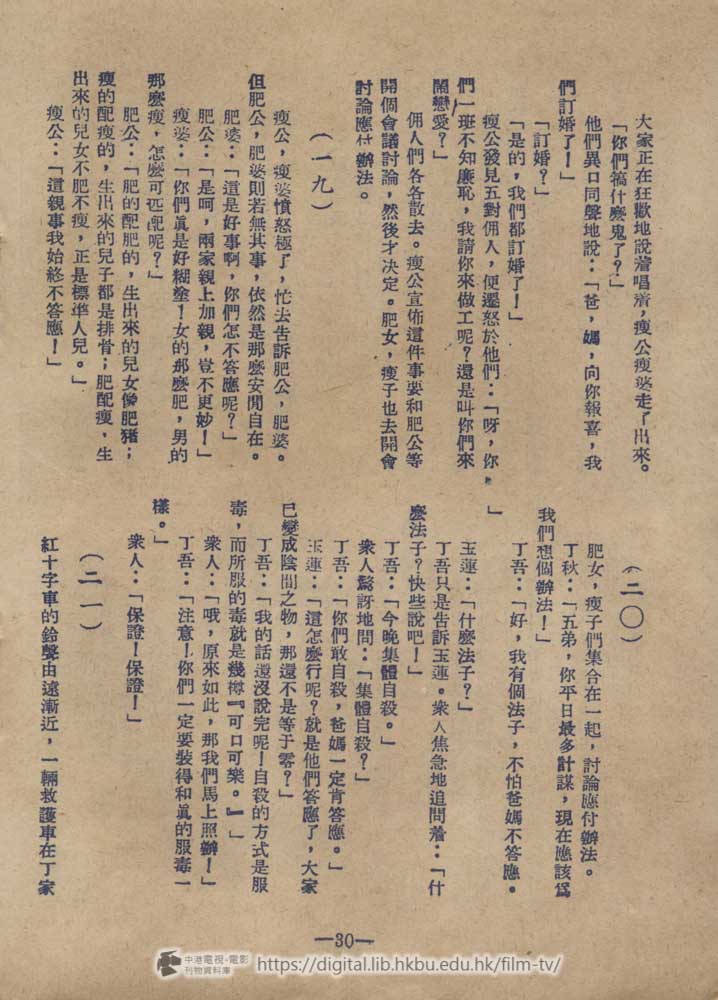 大家正在狂歡地說着唱着，瘦公瘦婆走了出來。
「你們犒什麽鬼了？」
他們異口同聲地說：「爸，媽，向你報喜，我
們訂婚了！」
「訂婚？」
「是的，我們都訂婚了！」
瘦公發見五對佣人，便遷怒於他們：「呀，你
們一班不知廉恥，我請你來做工呢？還是叫你們來
鬧戀愛？」
佣人們各各散去。瘦公宣佈這件事要和肥公等
開個會議討論，然後才決定。肥女，瘦子也去開會
討論應付辦法。
（一九）
瘦公，瘦婆憤怒極了，忙去告訴肥公，肥婆。
但肥公，肥婆則若無其事，依然是那麽安閒自在。
肥婆：「這是好事啊，你們怎不答應呢？」
肥公：「是呵，兩家親上加親，豈不更妙！」
瘦婆：「你們眞是好糊塗！女的那麽肥，男的
那麽瘦，怎麽可匹配呢？」
肥公：「肥的配肥的，生出來的兒女像肥猪；
瘦的配瘦的，生出來的兒子都是排骨；肥配瘦，生
出來的兒女不肥不瘦，正是標準人兒。」
瘦公：「這親事我始終不答應！」
（二〇）
肥女，瘦子們集合在一起，討論應付辦法。
丁秋：「五弟，你平日最多計謀，現在應該爲
我們想個辦法！」
丁吾：「好，我有個法子，不怕爸媽不答應。
」
玉蓮：「什麽法子？」
丁吾只是告訴玉蓮。衆人焦急地追問着：「什
麽法子？快些說吧！」
丁吾：「今晚集體自殺。」
衆人驚訝地問：「集體自殺？」
丁吾：「你們敢自殺，爸媽一定肯答應。」
玉蓮：「這怎麽行呢？就是他們答應了，大家
已變成陰間之物，那還不是等于零？」
丁吾：「我的話還沒說完呢！自殺的方式是服
毒，而所服的毒就是幾樽『可口可樂。』」
衆人：「哦，原來如此，那我們馬上照辦！」
丁吾：「注意！你們一定要裝得和眞的服毒一
樣。」
衆人：「保證！保證！」
（二一）
紅十字車的鈴聲由遠漸近，一輛救護車在丁家
—30—
中港電視·電影
刊物資料庫
https://digital.lib.hkbu.edu.hk/film-tv/